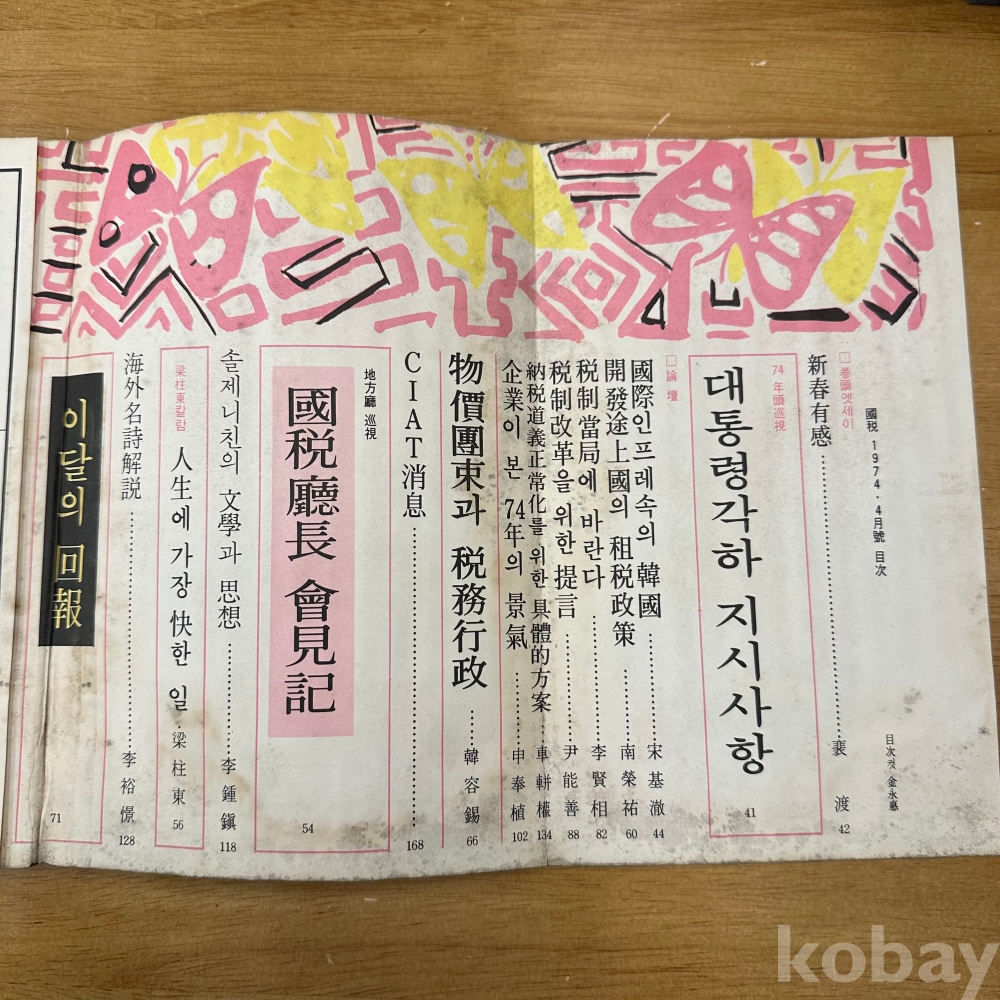 國税 1974·4月號 目次
目次컷 金永惠
□卷頭엣세이
新春有感 裵渡 42
74 年頭巡視
대통령각하 지시사항 41
□論壇
國際인프레속의 韓國 宋基澈 44
開發途上國의 租税政策 南榮祐 60
税制當局에 바란다 李賢相 82
税制改革을 위한 提言 尹能善 88
納税道義正常化를 위한 具體的方案 車軿權 134
企業이 본 74年의 景氣 申奉植 102
物價團束과 税務行政 韓容錫 66
CIAT消息 168
地方廳 巡視
國税廳長 會見記 54
솔제니친의 文學과 思想 李鍾鎭 118
梁柱東칼람
人生에 가장 快한 일 梁柱東 56
海外名詩解説 李裕憬 128
이달의 回報 71
kobay